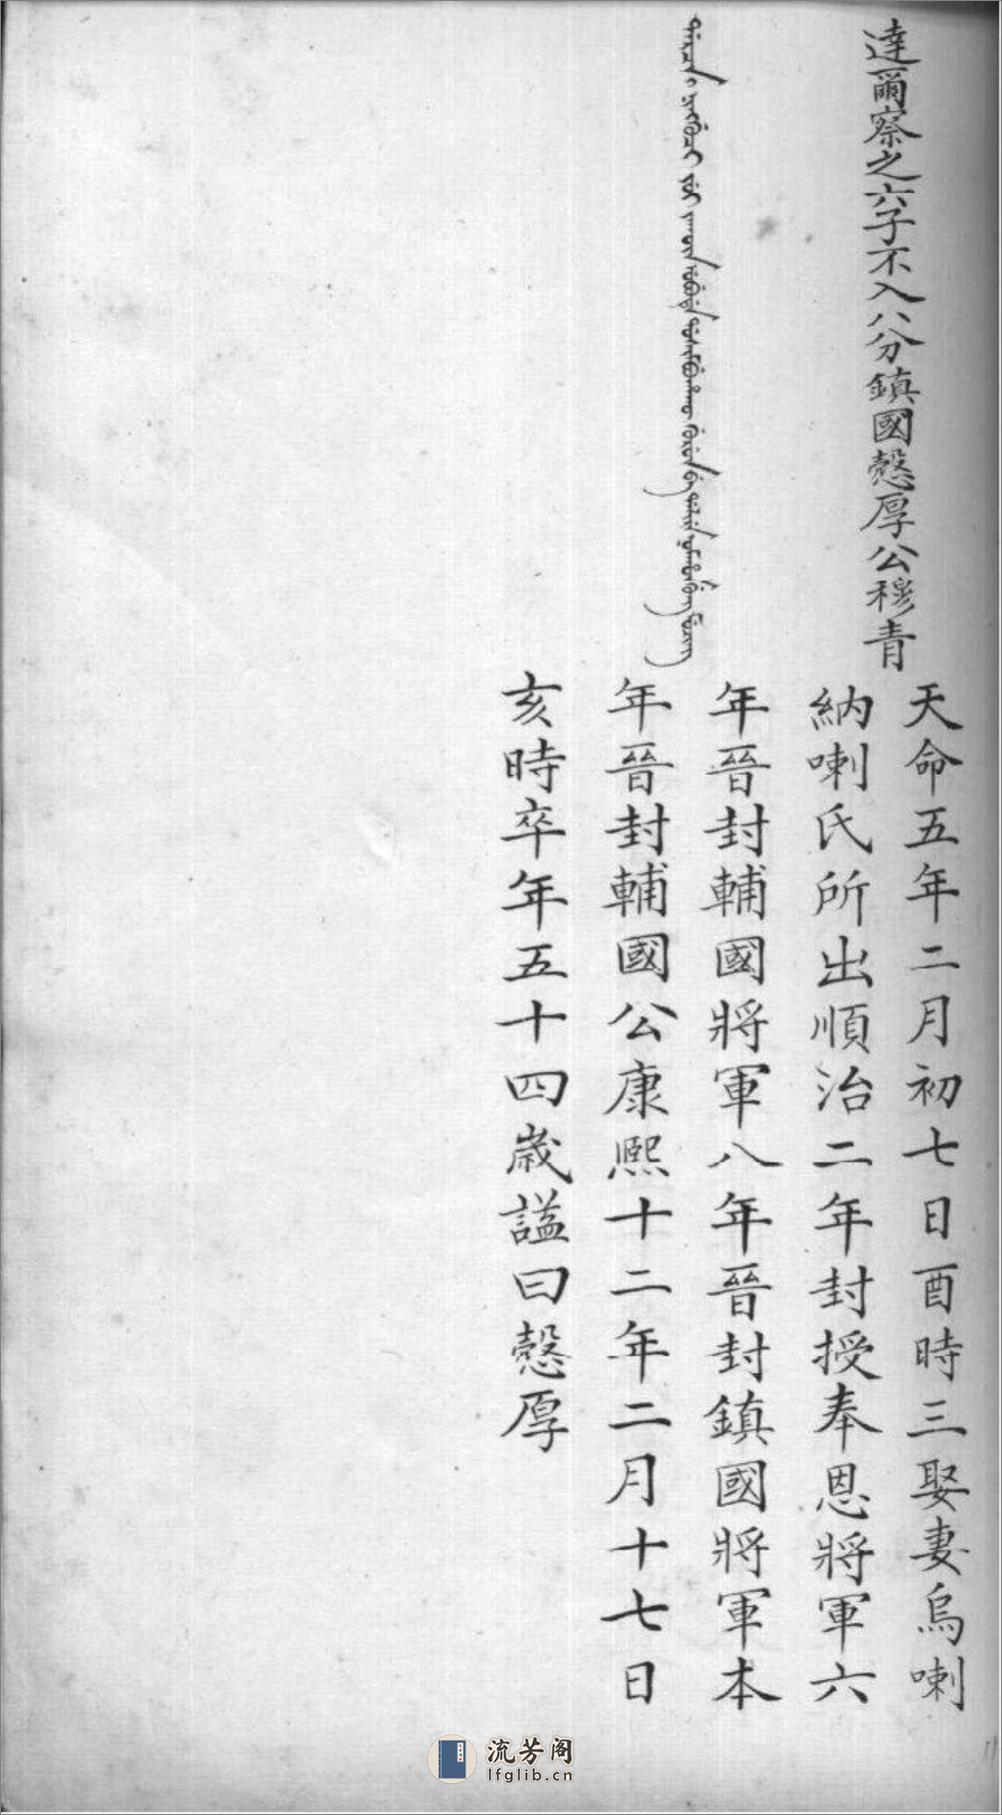 達爾察之六子不入八分鎮國慤厚公穆青
天命五年二月初七日酉時三娶妻烏喇
納喇氏所出順治二年封授奉恩將軍六
年晉封輔國將軍八年晉封鎮國將軍本
年晉封輔國公康熙十二年二月十七日
亥時卒年五十四歲謚曰慤厚
流芳阁
lfglib.cn